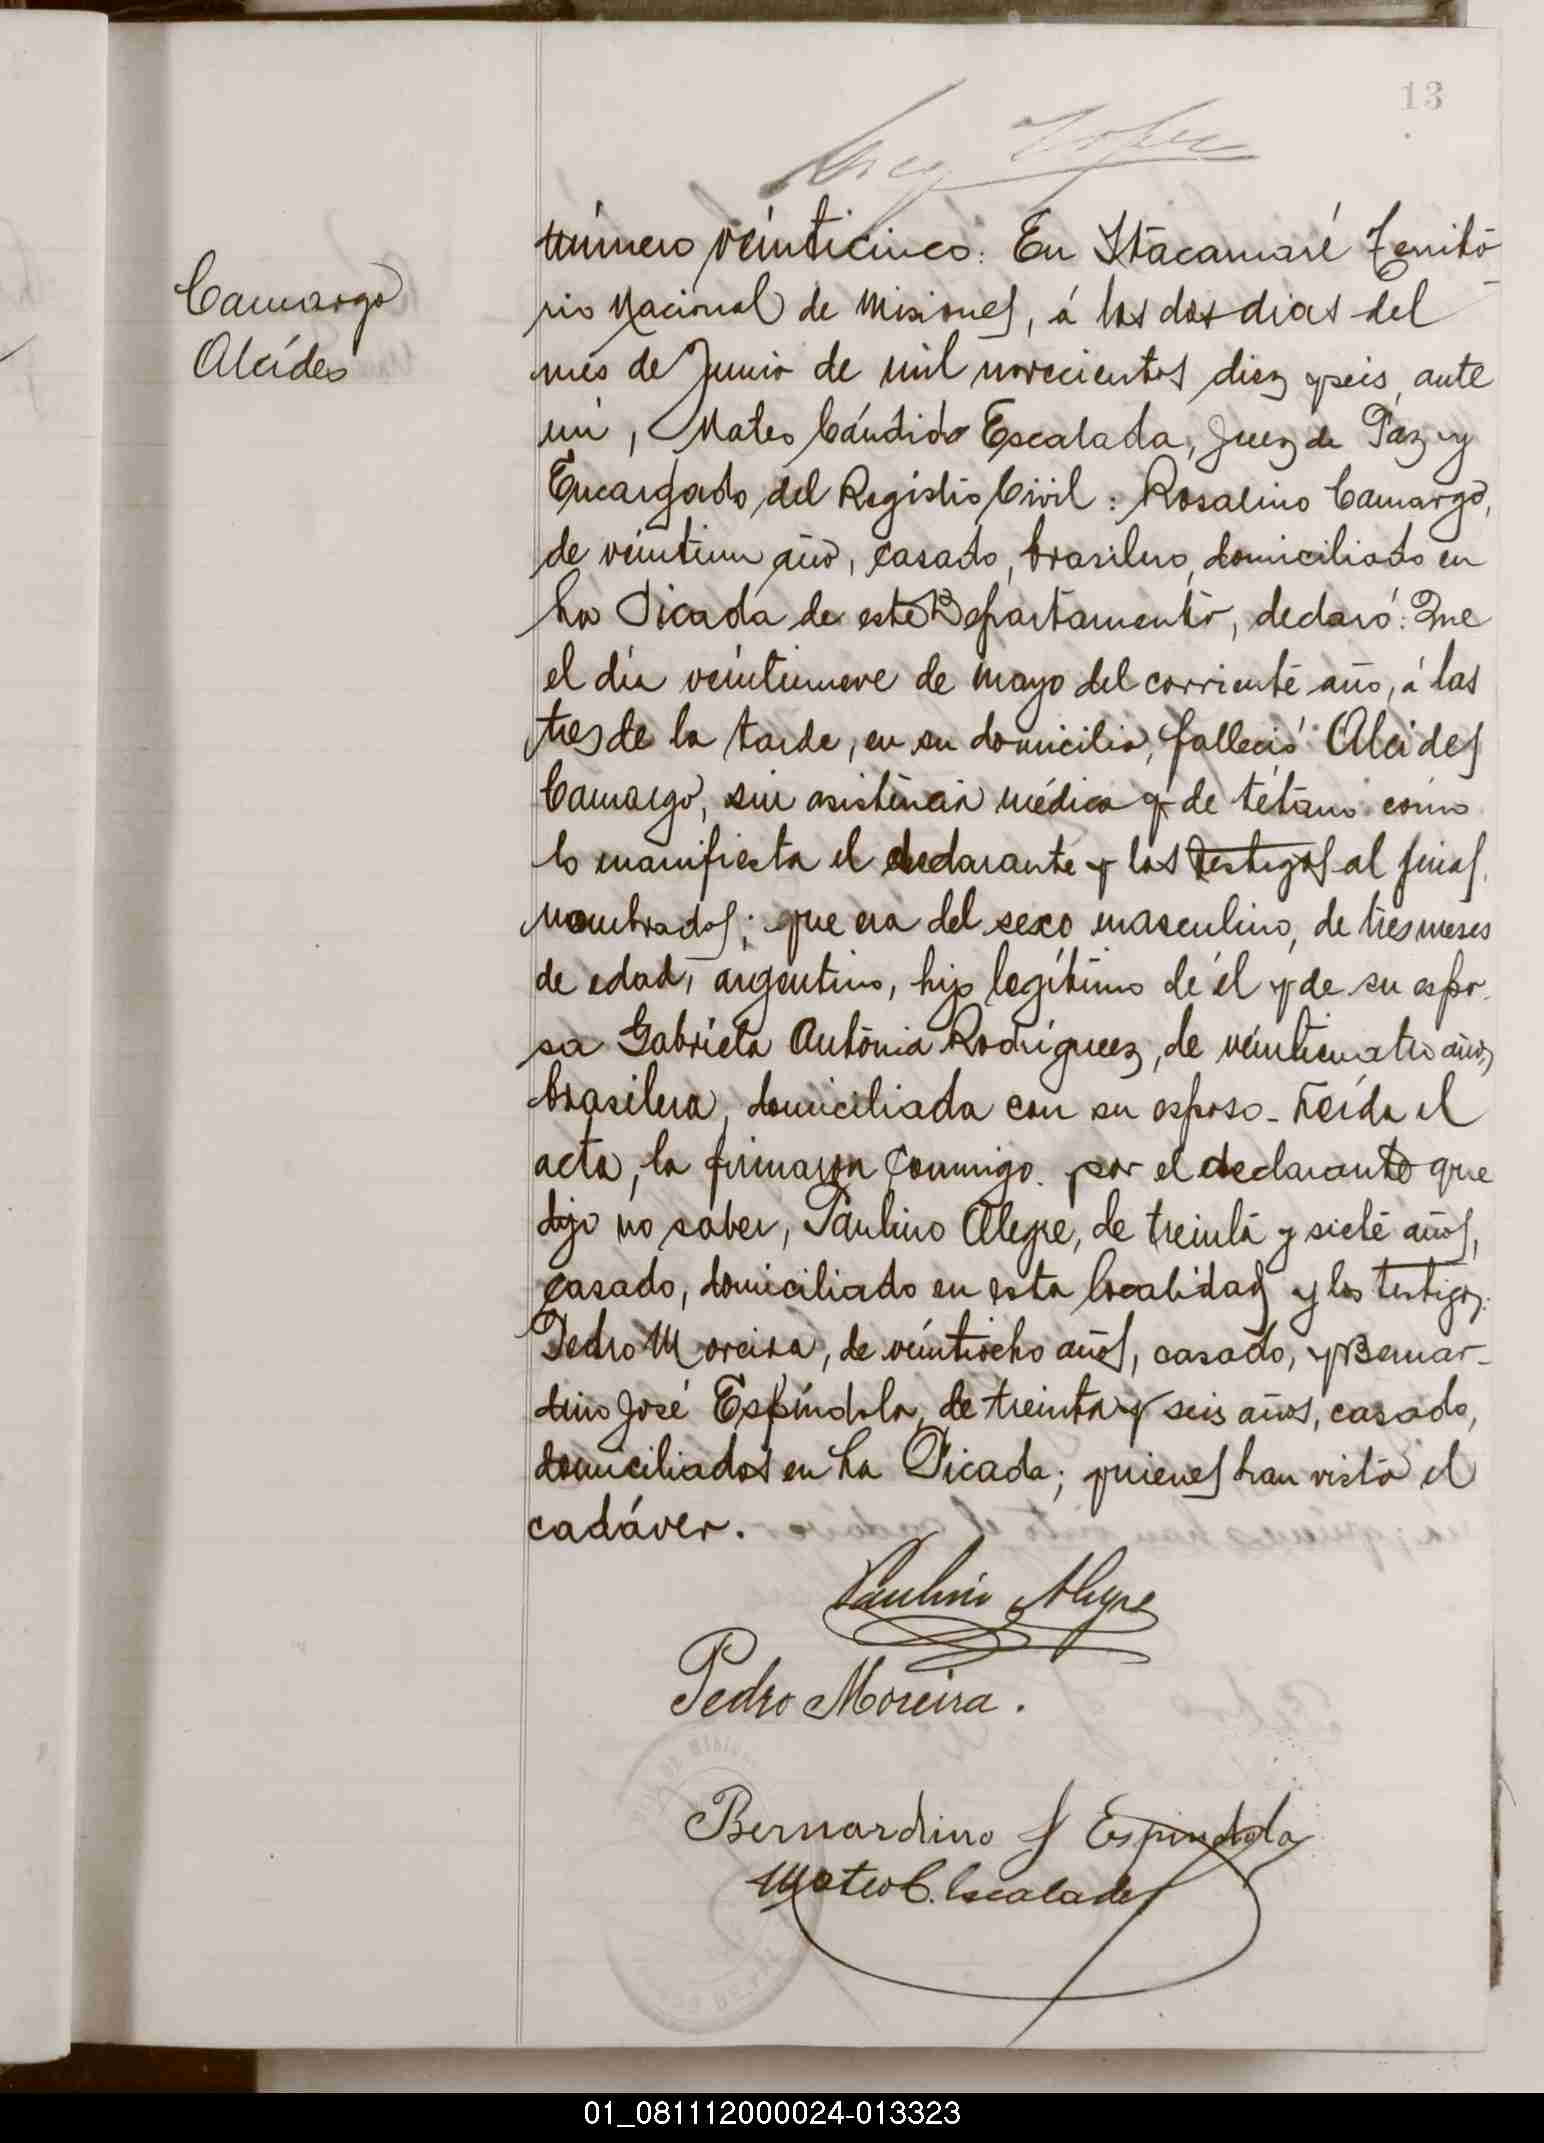 13
Camargo
Alcídes
Número veinticinco: En Itacaruaré Territo-
rio Nacional de Misiones, á los dos dias del
mes de Junio de mil novecientos diez y seis, ante
mi, Mateo Cándido Escalada, Juez de Paz y
Encargado del Registro Civil: Rosalino Camargo,
de veintiun año, casado, brasilero, domiciliado en
La Picada de este Departamento, declaró: Que
el día veintinueve de mayo del corriente año, á las
tres de la tarde, en su domicilio, falleció Alcides
Camargo, sin asistencia médica y de tétano como
lo manifiesta el declarante y los testigos al final
nombrados; que era del sexo masculino, de tres meses
de edad, argentino, hijo legítimo de él y de su espo-
sa Gabriela Antonia Rodriguez, de veinticuatro años,
brasilera, domiciliada con su esposo - Leída el
acta, la firmaron conmigo. por el declarante que
dijo no saber, Paulino Alegre, de treinta y siete años,
casado, domiciliado en esta localidad y los testigos:
Pedro Moreira, de veintiocho años, casado, y Bernar-
dino José Espíndola, de treinta y seis años, casado,
domiciliados en La Picada; quienes han visto el
cadáver.
Paulino Alegre
Pedro Moreira.
Bernardino J Espindola
Mateo C. Escalada
01_081112000024-013323